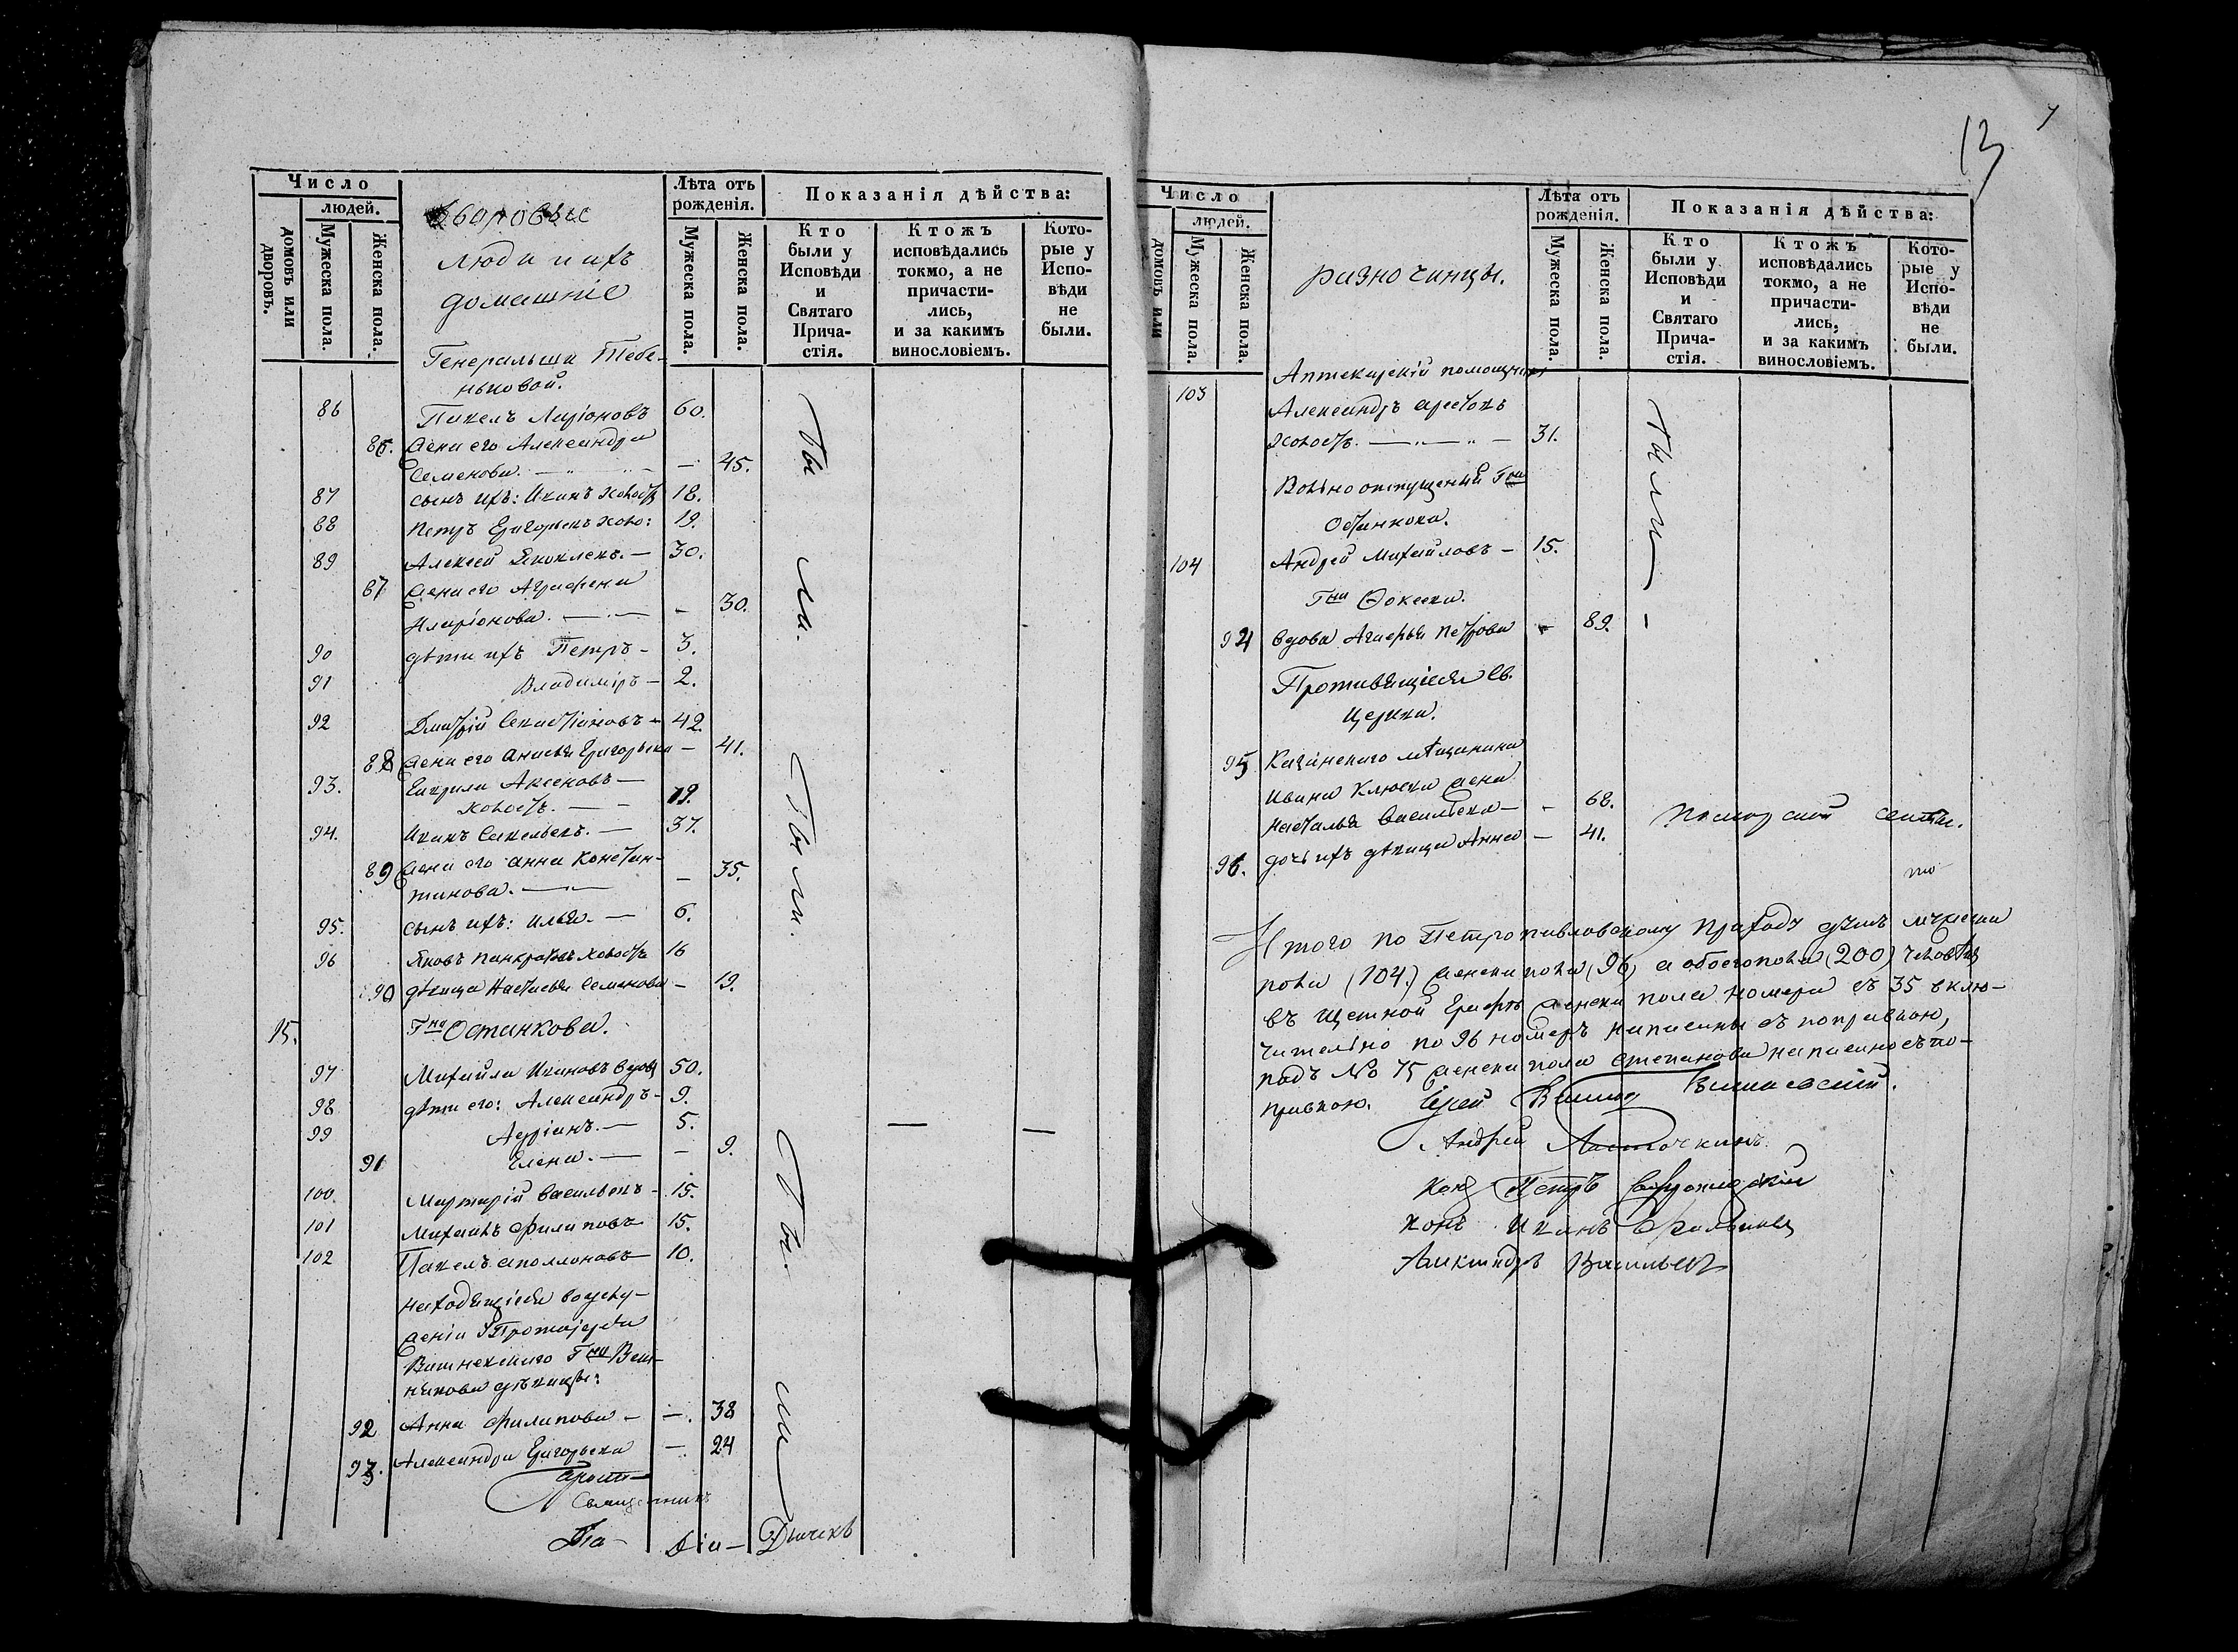 Число
людей.
домовъ или дворовъ.
Мужеска пола.
Женска пола.
Дворовые
люди и ихъ
домашніе
Лѣта отъ рожденія.
Мужеска пола.
Женска пола.
Показанія дѣйства:
Кто были у Исповѣди и Святаго Причастія.
Ктожъ исповѣдались токмо, а не причастились, и за какимъ винословіемъ.
Которые у Исповѣди не были.
Генеральши Тебе-
ньковой.
86 Павелъ Ларіоновъ 60.
86. жена его Александра
Семенова. — 45.
87 сынъ ихъ: Иванъ холостъ 18.
88 Петръ Григорьевъ холо: 19.
89 Алексей Яковлевъ. — 30.
87 жена его Аграфена
Иларіонова. — 30.
90 дѣти ихъ Петръ — 3.
91 Владиміръ — 2.
92 Дмитрій Севастіановъ — 42.
88 жена его Анисья Григорьева — 41.
93. Гаврила Аксеновъ —
холостъ. — 19.
94. Иванъ Савельевъ. — 37.
89 жена его Анна Констан-
тинова. — 35.
95. сынъ ихъ: Илья. — 6.
96 Яковъ Панкратовъ холостъ 16
90 дѣвица Настасья Семенова — 19.
Были.
Были.
15. Гна Останкова.
97 Михайла Ивановъ вдовъ 50.
98 дѣти его: Александръ — 9.
99 Адріанъ. — 5.
91 Елена. — 9.
100. Мартирій Васильевъ — 15.
101 Михаилъ Филиповъ 15.
102 Павелъ Аполлоновъ — 10.
находящіеся во служ-
женіи Протоіерея
Вишневскаго Гна
дѣвицы:
92 Анна Филипова — 38
93. Александра Григорьева — 24
Были
Священникъ
Діа — Дьячекъ
13
Число
людей.
домовъ или
Мужеска пола.
Женска пола.
разночинцы.
Лѣта отъ рожденія.
Мужеска пола.
Женска пола.
Показанія дѣйства:
Кто были у Исповѣди и Святаго Причастія.
Ктожъ исповѣдались токмо, а не причастились, и за какимъ винословіемъ.
Которые у Исповѣди не были.
Аптекарскій помощникъ
103 Александръ
холостъ. — 31.
Вольноотпущенный Гна
Останкова.
104 Андрей Михайловъ — 15.
Гна Фокеева.
94 вдова Агафья Петрова — 89.
Были —
Противящіеся Св.
Церкви.
95 мѣщанина
Ивана Клюева жена
Наталья Васильева — 68.
96. дочь ихъ дѣвица Анна — 41.
Поморской секты.
Итого по Петропавловскому приходу душъ мужеска
пола (104.) женска пола (96) а обоего пола (200) человѣкъ
въ щетной графѣ женска пола номера съ 35 вклю-
чительно по 96 номеръ написаны съ поправкою,
подъ № 75 женска пола Степанова написано съ по-
правкою. Іерей Вишневскій.
Андрей Ласточкинъ.
Петръ
Иванъ
Александръ Васильевъ